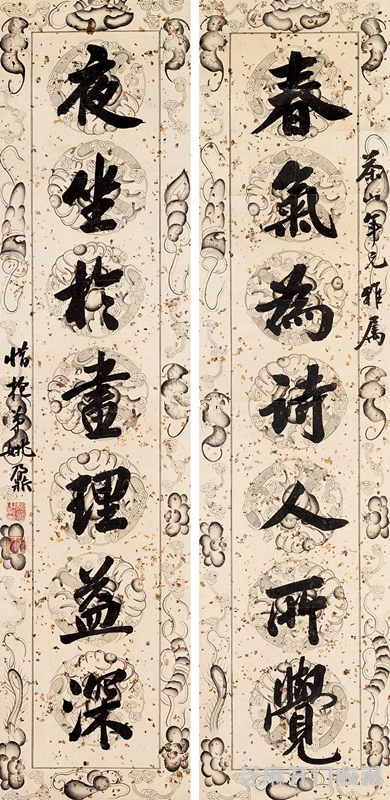 茶山年兄雅属
春氣為詩人所覺
夜坐於畫理益深
惜抱弟姚鼐